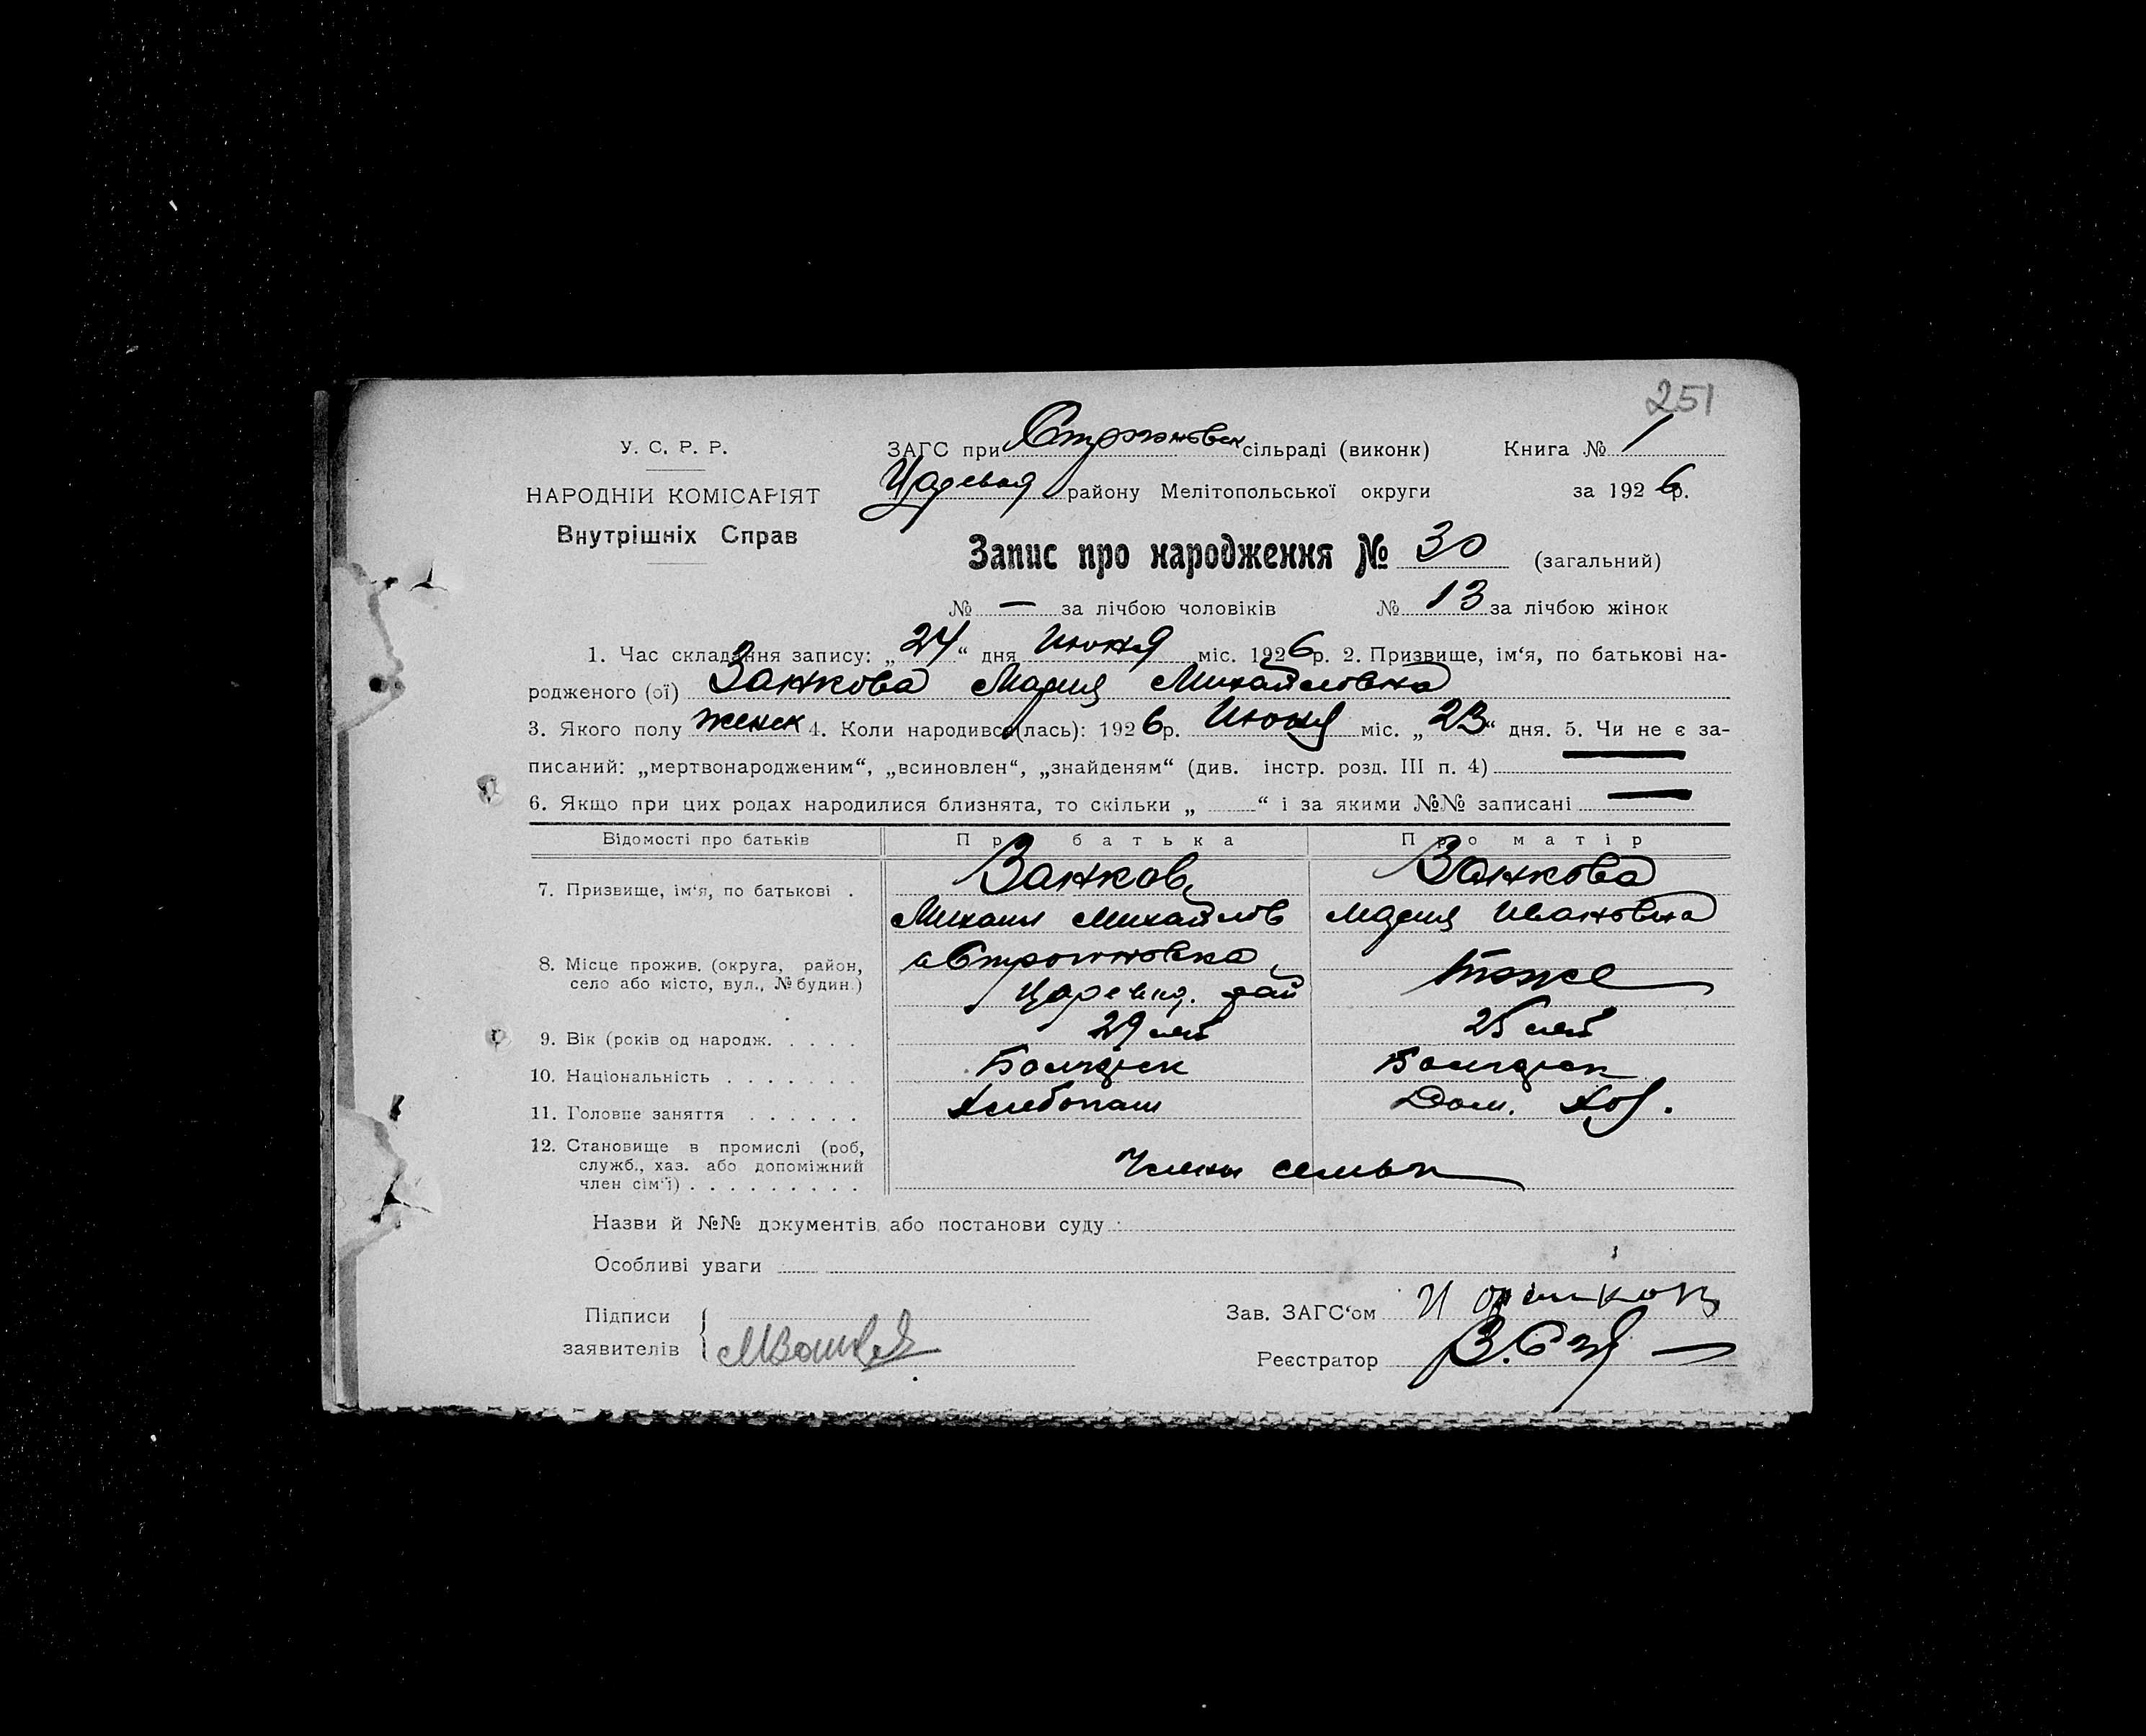 251
У. С. Р. Р.
ЗАГС при Строгановск сільраді (виконк) Книга № 1
НАРОДНІЙ КОМІСАРІЯТ
Царевод району Мелітопольської округи за 1926р.
Внутрішніх Справ
Запис про народження № 30 (загальний)
№ — за лічбою чоловіків № 13 за лічбою жінок
1. Час складання запису: „24“ дня Июня міс. 1926р. 2. Призвище, ім‘я, по батькові на-
родженого (ої) Занкова Мария Михайловна
3. Якого полу женск 4. Коли народився(лась): 1926р. Июня міс. „23“ дня. 5. Чи не є за-
писаний: „мертвонародженим“, „всиновлен“, „знайденям“ (див. інстр. розд. III п. 4) —
6. Якщо при цих родах народилися близнята, то скільки „ “ і за якими №№ записані —
Відомості про батьків Про батька Про матір
7. Призвище, ім‘я, по батькові . Занков Занкова
Михаил Михайлов Мария Ивановна
8. Місце прожив. (округа, район, село або місто, вул., № будин.) с Строгановка Тоже
Царевод. рай
9. Вік (років од народж. . . . . 29 лет 25 лет
10. Національність . . . . . . . Болгарск Болгарск
11. Головне заняття . . . . . . Хлебопаш Дом. Хоз.
12. Становище в промислі (роб, служб., хаз. або допоміжний член сім‘ї) . . . . . . . . . Члены семьи
Назви й №№ документів або постанови суду
Особливі уваги
Підписи Зав. ЗАГС‘ом
заявителів
Реєстратор